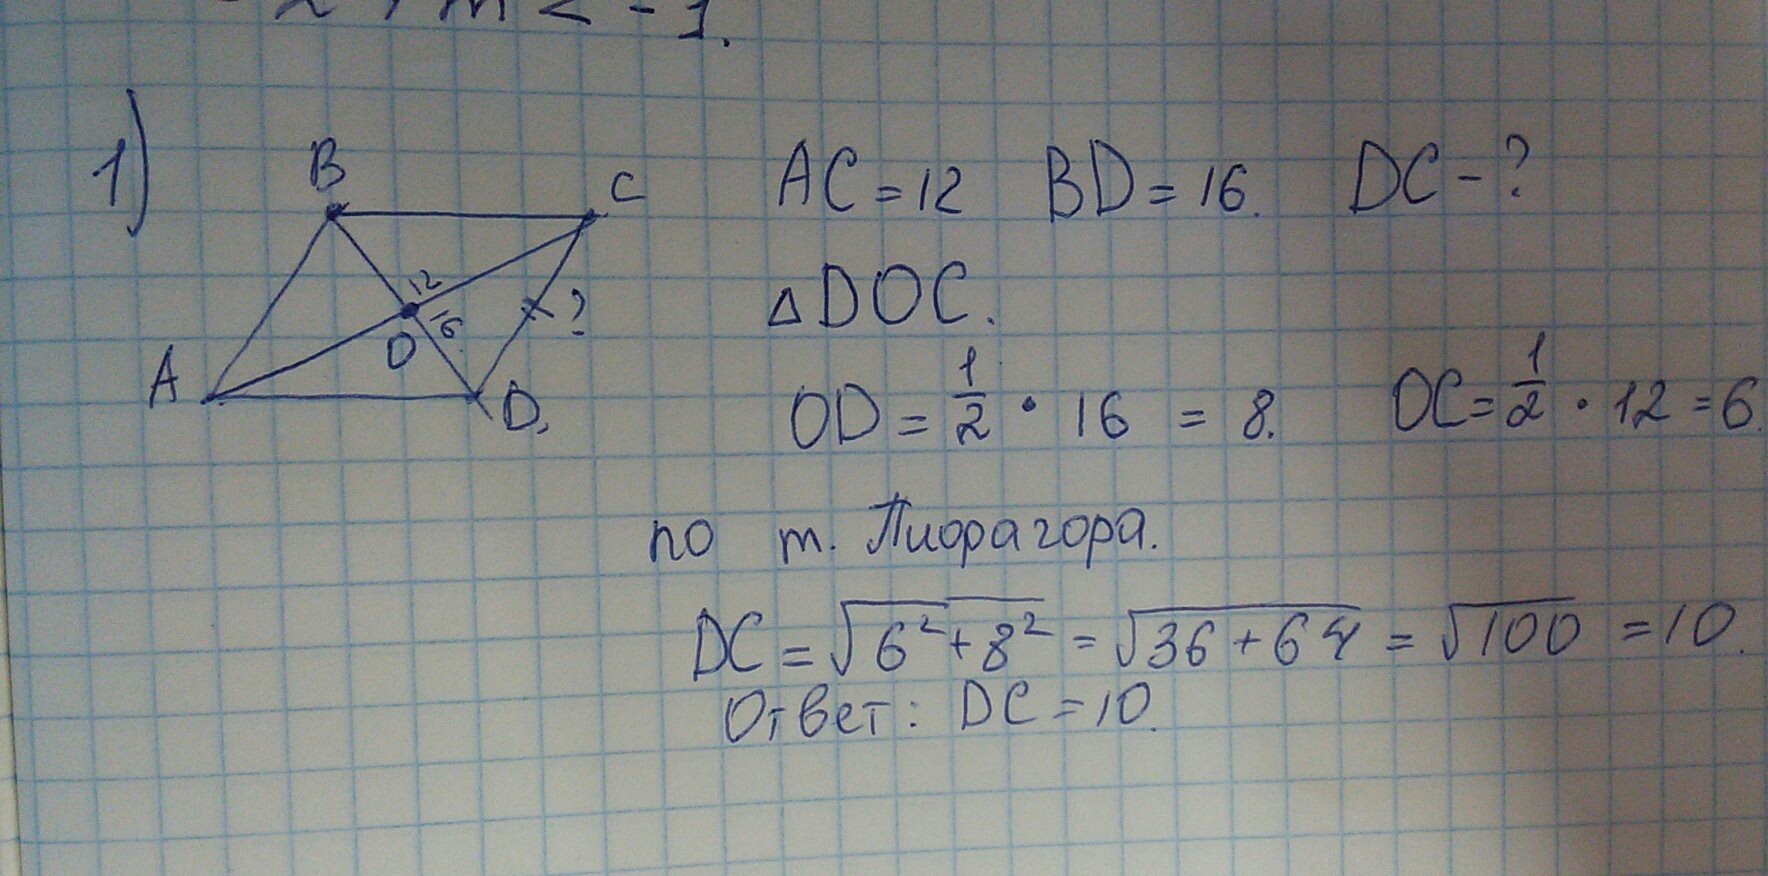 1)
B
C
12
16
O
?
A
D,
AC = 12 BD = 16. DC - ?
△DOC.
OD = 1/2 · 16 = 8. OC = 1/2 · 12 = 6.
по т. Пифрагора.
DC = √6² + 8² = √36 + 64 = √100 = 10.
Ответ: DC = 10.